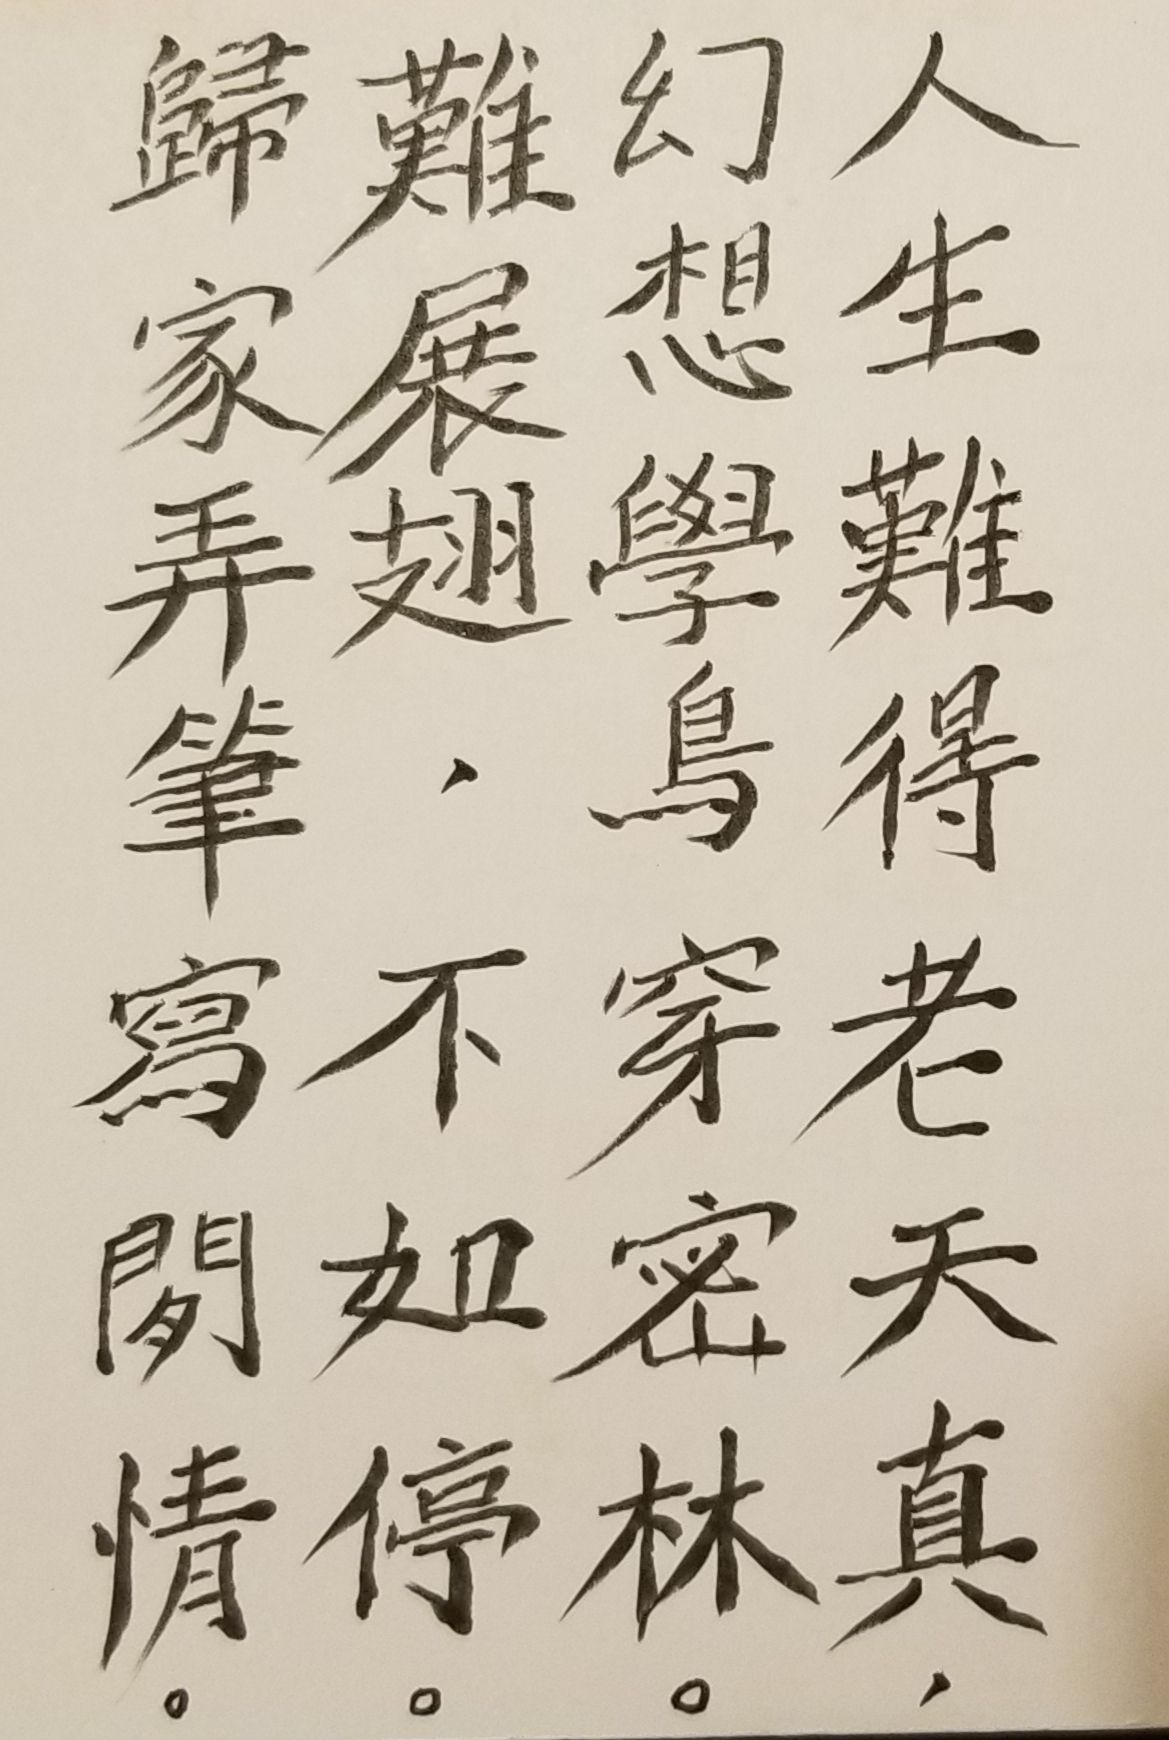 人生難得老天真，
幻想學鳥穿密林。
難展翅，不如停。
歸家弄筆寫閒情。